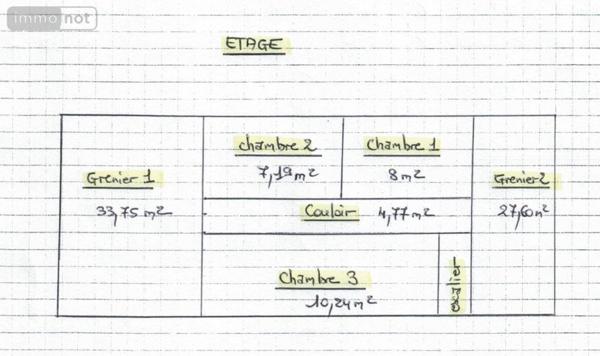 immo not
ETAGE
Chambre 2
7,19 m2
Chambre 1
8 m2
Grenier 1
33,75 m2
Grenier 2
27,60 m2
Couloir 4,77 m2
Chambre 3
10,24 m2
escalier